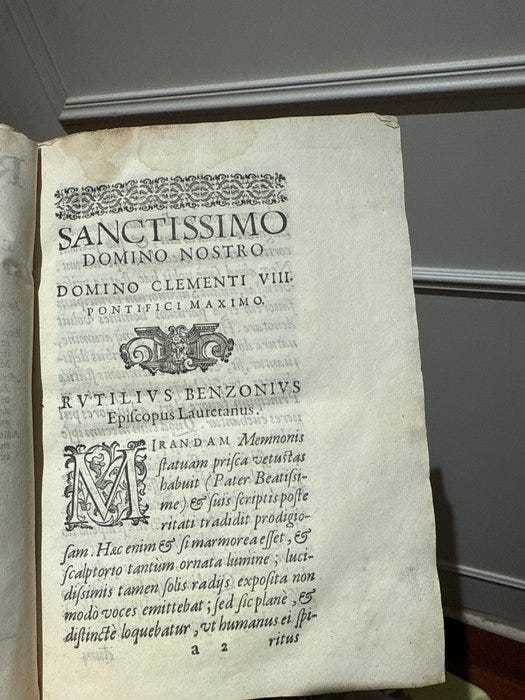 SANCTISSIMO
DOMINO NOSTRO
DOMINO CLEMENTI VIII.
PONTIFICI MAXIMO.
RVTILIVS BENZONIVS
Epiſcopus Lauretanus.
MIRANDAM Memnonis
ſtatuam priſca vetuſtas
habuit (Pater Beatiſsi-
me) & ſuis ſcriptis poſte
ritati tradidit prodigio-
ſam. Hæc enim & ſi marmorea eſſet, &
ſcalptorio tantum ornata lumine; luci-
diſsimis tamen ſolis radijs expoſita non
modo voces emittebat; ſed ſic planè, &
diſtinctè loquebatur, vt humanus ei ſpi-
a 2 ritus